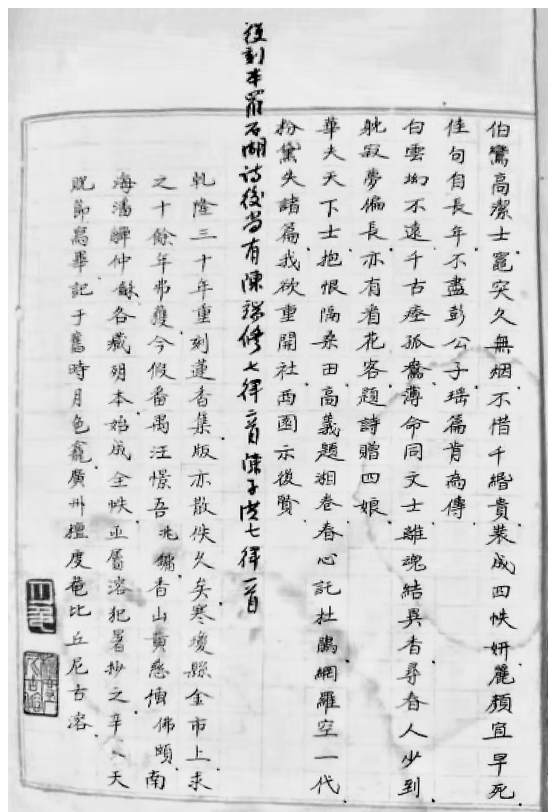 伯鸞高潔士竈突久無烟不惜千緡貴裝成四帙妍麗頻宜早死
佳句自長年不盡彭公子瑶篇肯為傳
白雲坳不遠千古瘞孤鸞薄命同文士離魂結異香尋春人少到
躭寂夢偏長亦有看花客題詩贈四娘
華夫天下士抱恨隔桑田高義題湘卷春心託杜鵑網羅空一代
粉黛失諸篇我欲重開社西園示後賢
復刻本羅石湖詩後尚有陳 修七律二首陳子 七律一首
乾隆三十年重刻蓮香集版亦散佚久矣寒瓊縣金市上求
之十餘年弗獲今假番禺汪憬吾兆鏞香山黄慈博佛頤南
海潘 仲穌各藏殘本始成全帙亟屬溶犯暑抄之辛八天
貺節寫畢記于舊時月色龕廣州檀度菴比丘尼古溶